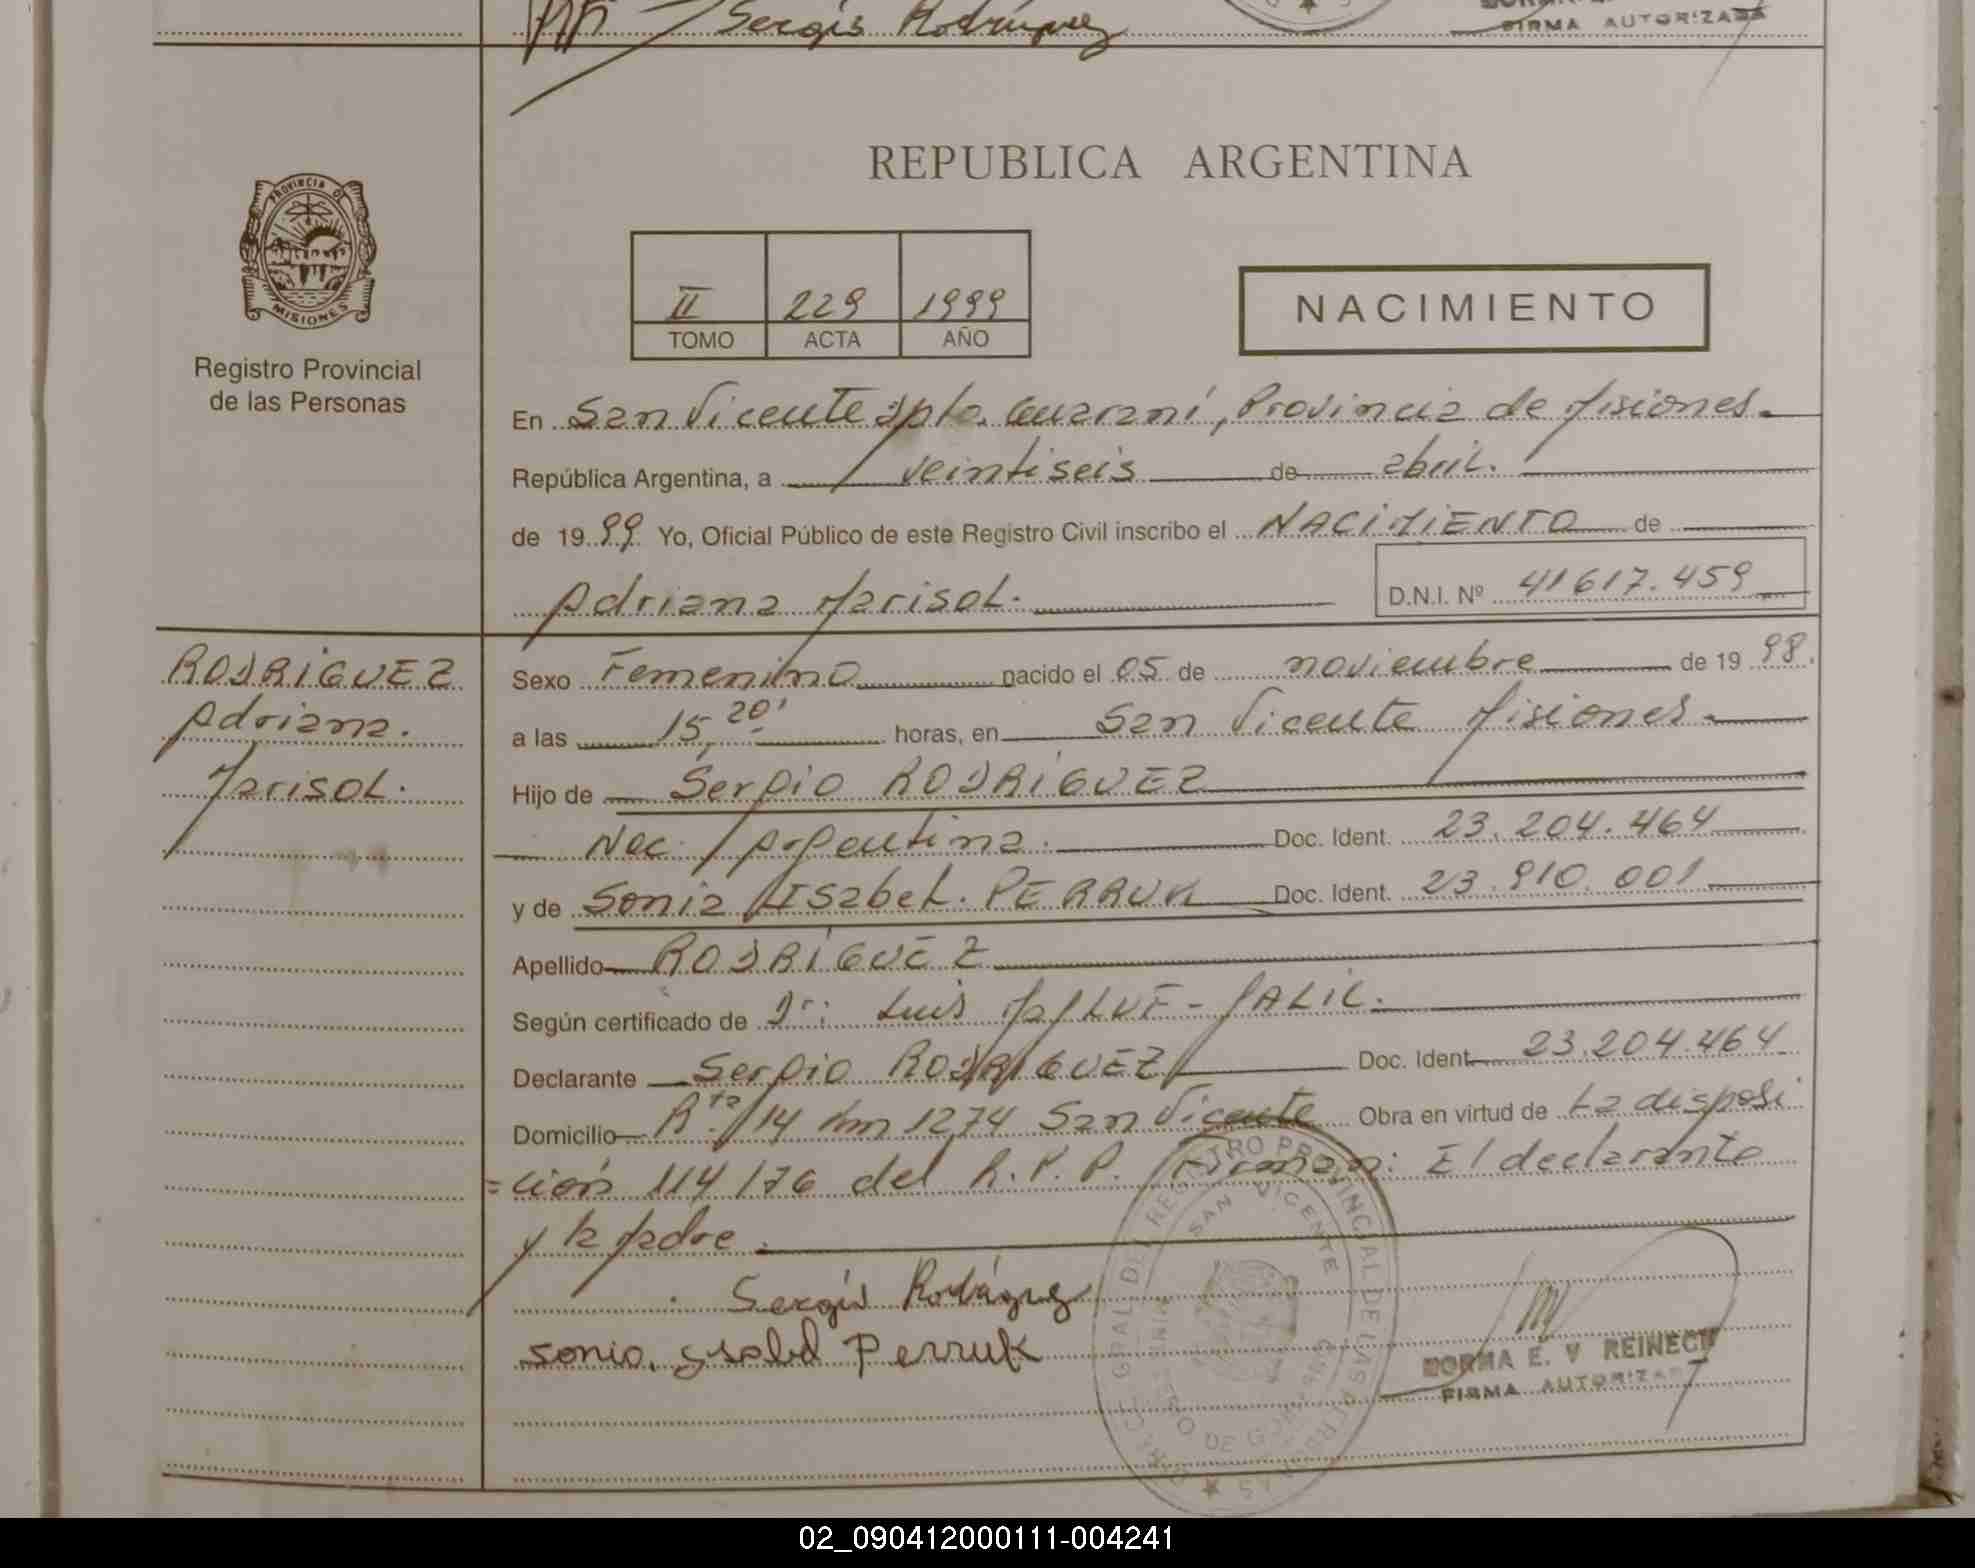 Sergio Rodríguez
FIRMA AUTORIZADA
REPUBLICA ARGENTINA
PROVINCIA DE
MISIONES
II 229 1999
TOMO ACTA AÑO
NACIMIENTO
Registro Provincial
de las Personas
En San Vicente dpto. Guaraní, Provincia de Misiones.
República Argentina, a veintiseis de abril.
de 1999 Yo, Oficial Público de este Registro Civil inscribo el NACIMIENTO de
Adriana Marisol. D.N.I. Nº 41617.459
RODRIGUEZ
Adriana.
Marisol.
Sexo Femenino nacido el 05 de noviembre de 1998.
a las 15,20' horas, en San Vicente Misiones.
Hijo de Sergio RODRIGUEZ
Nac. Argentina. Doc. Ident. 23.204.464
y de Sonia Isabel. PERRUK Doc. Ident. 23.910.001
Apellido RODRÍGUEZ
Según certificado de Dr: Luis JALIL.
Declarante Sergio RODRIGUEZ Doc. Ident. 23.204.464
Domicilio Rta. 14 km 1274 San Vicente Obra en virtud de la disposi
=ción 114/76 del R.P.P. Firman: El declarante
y la Madre.
Sergio Rodríguez
sonia ysabel Perruk
DIRECC. GRAL. DEL REGISTRO PROVINCIAL DE LAS PERSONAS
SAN VICENTE
NORMA E. V REINECH
FIRMA AUTORIZADA
02_090412000111-004241